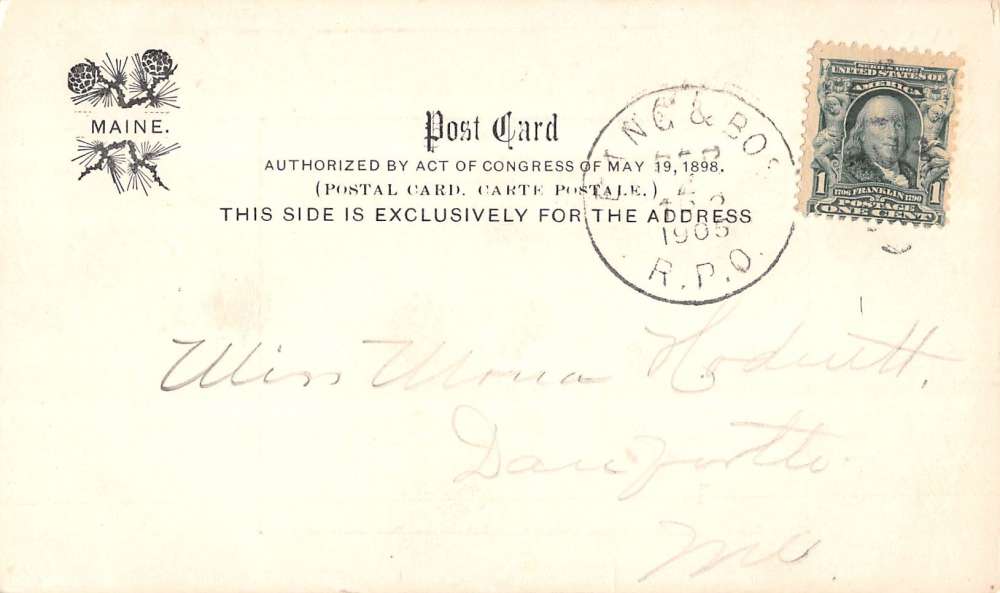 MAINE.
Post Card
AUTHORIZED BY ACT OF CONGRESS OF MAY 19, 1898.
(POSTAL CARD. CARTE POSTALE.)
THIS SIDE IS EXCLUSIVELY FOR THE ADDRESS
BANG & BOS
1905
R.P.O.
SERIES 1902
UNITED STATES OF
AMERICA
1 1706 FRANKLIN 1790 1
POSTAGE
ONE CENT
Miss Mona
Danforth
Me